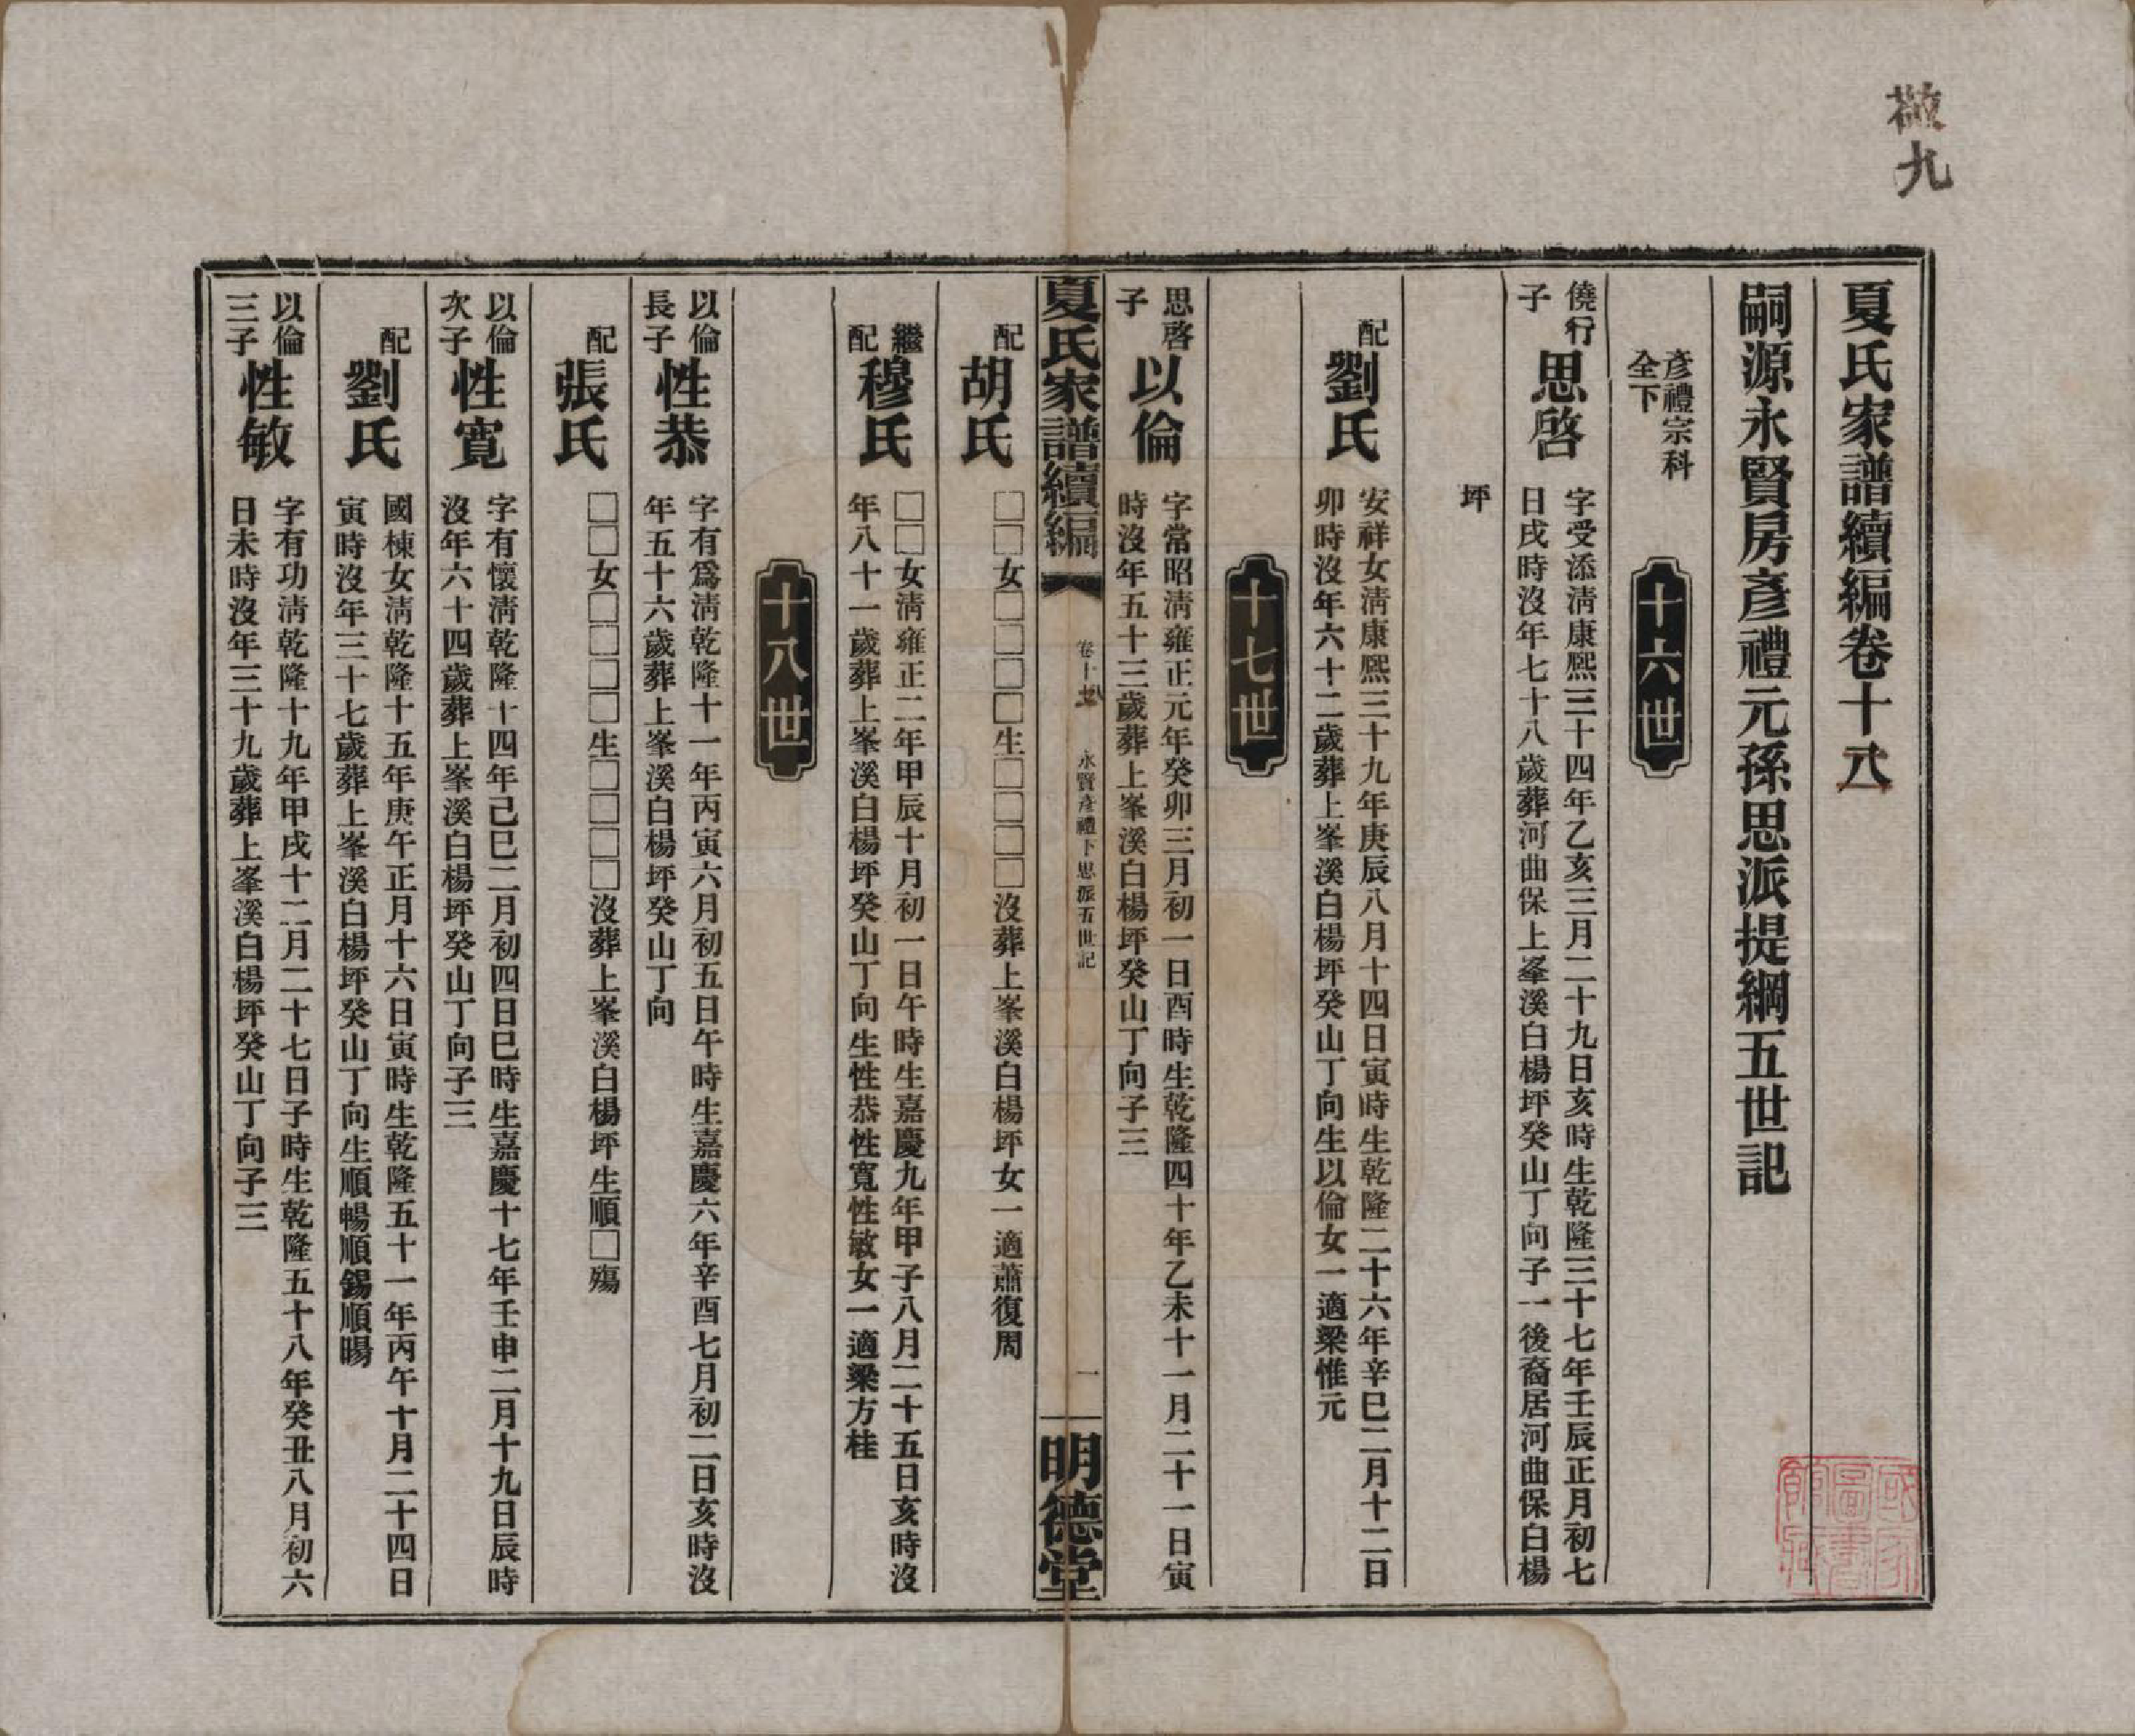 敬九
夏氏家譜續編卷十八
嗣源永賢房彥禮元孫思派提綱五世記
彥禮宗科
仝下
十六世
僥行
子
思啓
字受添淸康熙三十四年乙亥三月二十九日亥時生乾隆三十七年壬辰正月初七
日戌時沒年七十八歲葬河曲保上峯溪白楊坪癸山丁向子一後裔居河曲保白楊
坪
配
劉氏
安祥女淸康熙三十九年庚辰八月十四日寅時生乾隆二十六年辛巳二月十二日
卯時沒年六十二歲葬上峯溪白楊坪癸山丁向生以倫女一適梁惟元
十七世
思啓
子
以倫
字常昭淸雍正元年癸卯三月初一日酉時生乾隆四十年乙未十一月二十一日寅
時沒年五十三歲葬上峯溪白楊坪癸山丁向子三
夏氏家譜續編
卷十八
永賢彥禮下思派五世記
一
明德堂
配
胡氏
□□女□□□□生□□□□沒葬上峯溪白楊坪女一適蕭復周
繼
配
穆氏
□□女淸雍正二年甲辰十月初一日午時生嘉慶九年甲子八月二十五日亥時沒
年八十一歲葬上峯溪白楊坪癸山丁向生性恭性寬性敏女一適梁方桂
十八世
以倫
長子
性恭
字有爲淸乾隆十一年丙寅六月初五日午時生嘉慶六年辛酉七月初二日亥時沒
年五十六歲葬上峯溪白楊坪癸山丁向
配
張氏
□□女□□□□生□□□□沒葬上峯溪白楊坪生順□殤
以倫
次子
性寬
字有懷淸乾隆十四年己巳二月初四日巳時生嘉慶十七年壬申二月十九日辰時
沒年六十四歲葬上峯溪白楊坪癸山丁向子三
配
劉氏
國棟女淸乾隆十五年庚午正月十六日寅時生乾隆五十一年丙午十月二十四日
寅時沒年三十七歲葬上峯溪白楊坪癸山丁向生順暢順錫順暘
以倫
三子
性敏
字有功淸乾隆十九年甲戌十二月二十七日子時生乾隆五十八年癸丑八月初六
日未時沒年三十九歲葬上峯溪白楊坪癸山丁向子三
國家
圖書
館藏